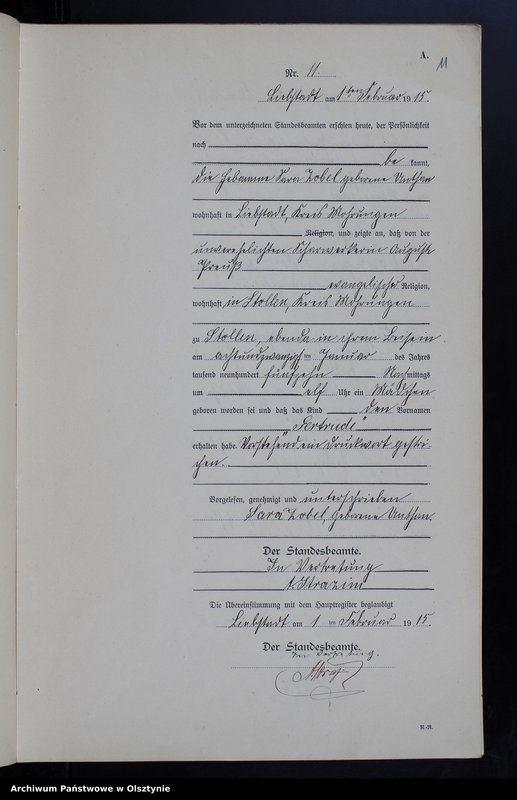 A.
11
Nr. 11.
Liebstadt am 1ten Februar 1915.
Vor dem unterzeichneten Standesbeamten erschien heute, der Persönlichkeit
nach
be kannt,
die Hebamme Sara Zobel geborene Unthan
wohnhaft in Liebstadt, Kreis Mohrungen
Religion, und zeigte an, daß von der
unverehelichten Scharwerkerin Auguste
Preuß
evangelischer Religion,
wohnhaft in Stollen, Kreis Mohrungen
zu Stollen, ebenda in ihrem Beisein
am achtundzwanzigsten Januar des Jahres
tausend neunhundert fünfzehn Nachmittags
um elf Uhr ein Mädchen
geboren worden sei und daß das Kind den Vornamen
„Gertrude“
erhalten habe. Vorstehend ein Druckwort gestri-
chen.
Vorgelesen, genehmigt und unterschrieben
Sara Zobel, geborene Unthan.
Der Standesbeamte.
In Vertretung
Die Übereinstimmung mit dem Hauptregister beglaubigt
Liebstadt am 1 ten Februar 1915.
Der Standesbeamte.
In Vertretung.
Archiwum Państwowe w Olsztynie